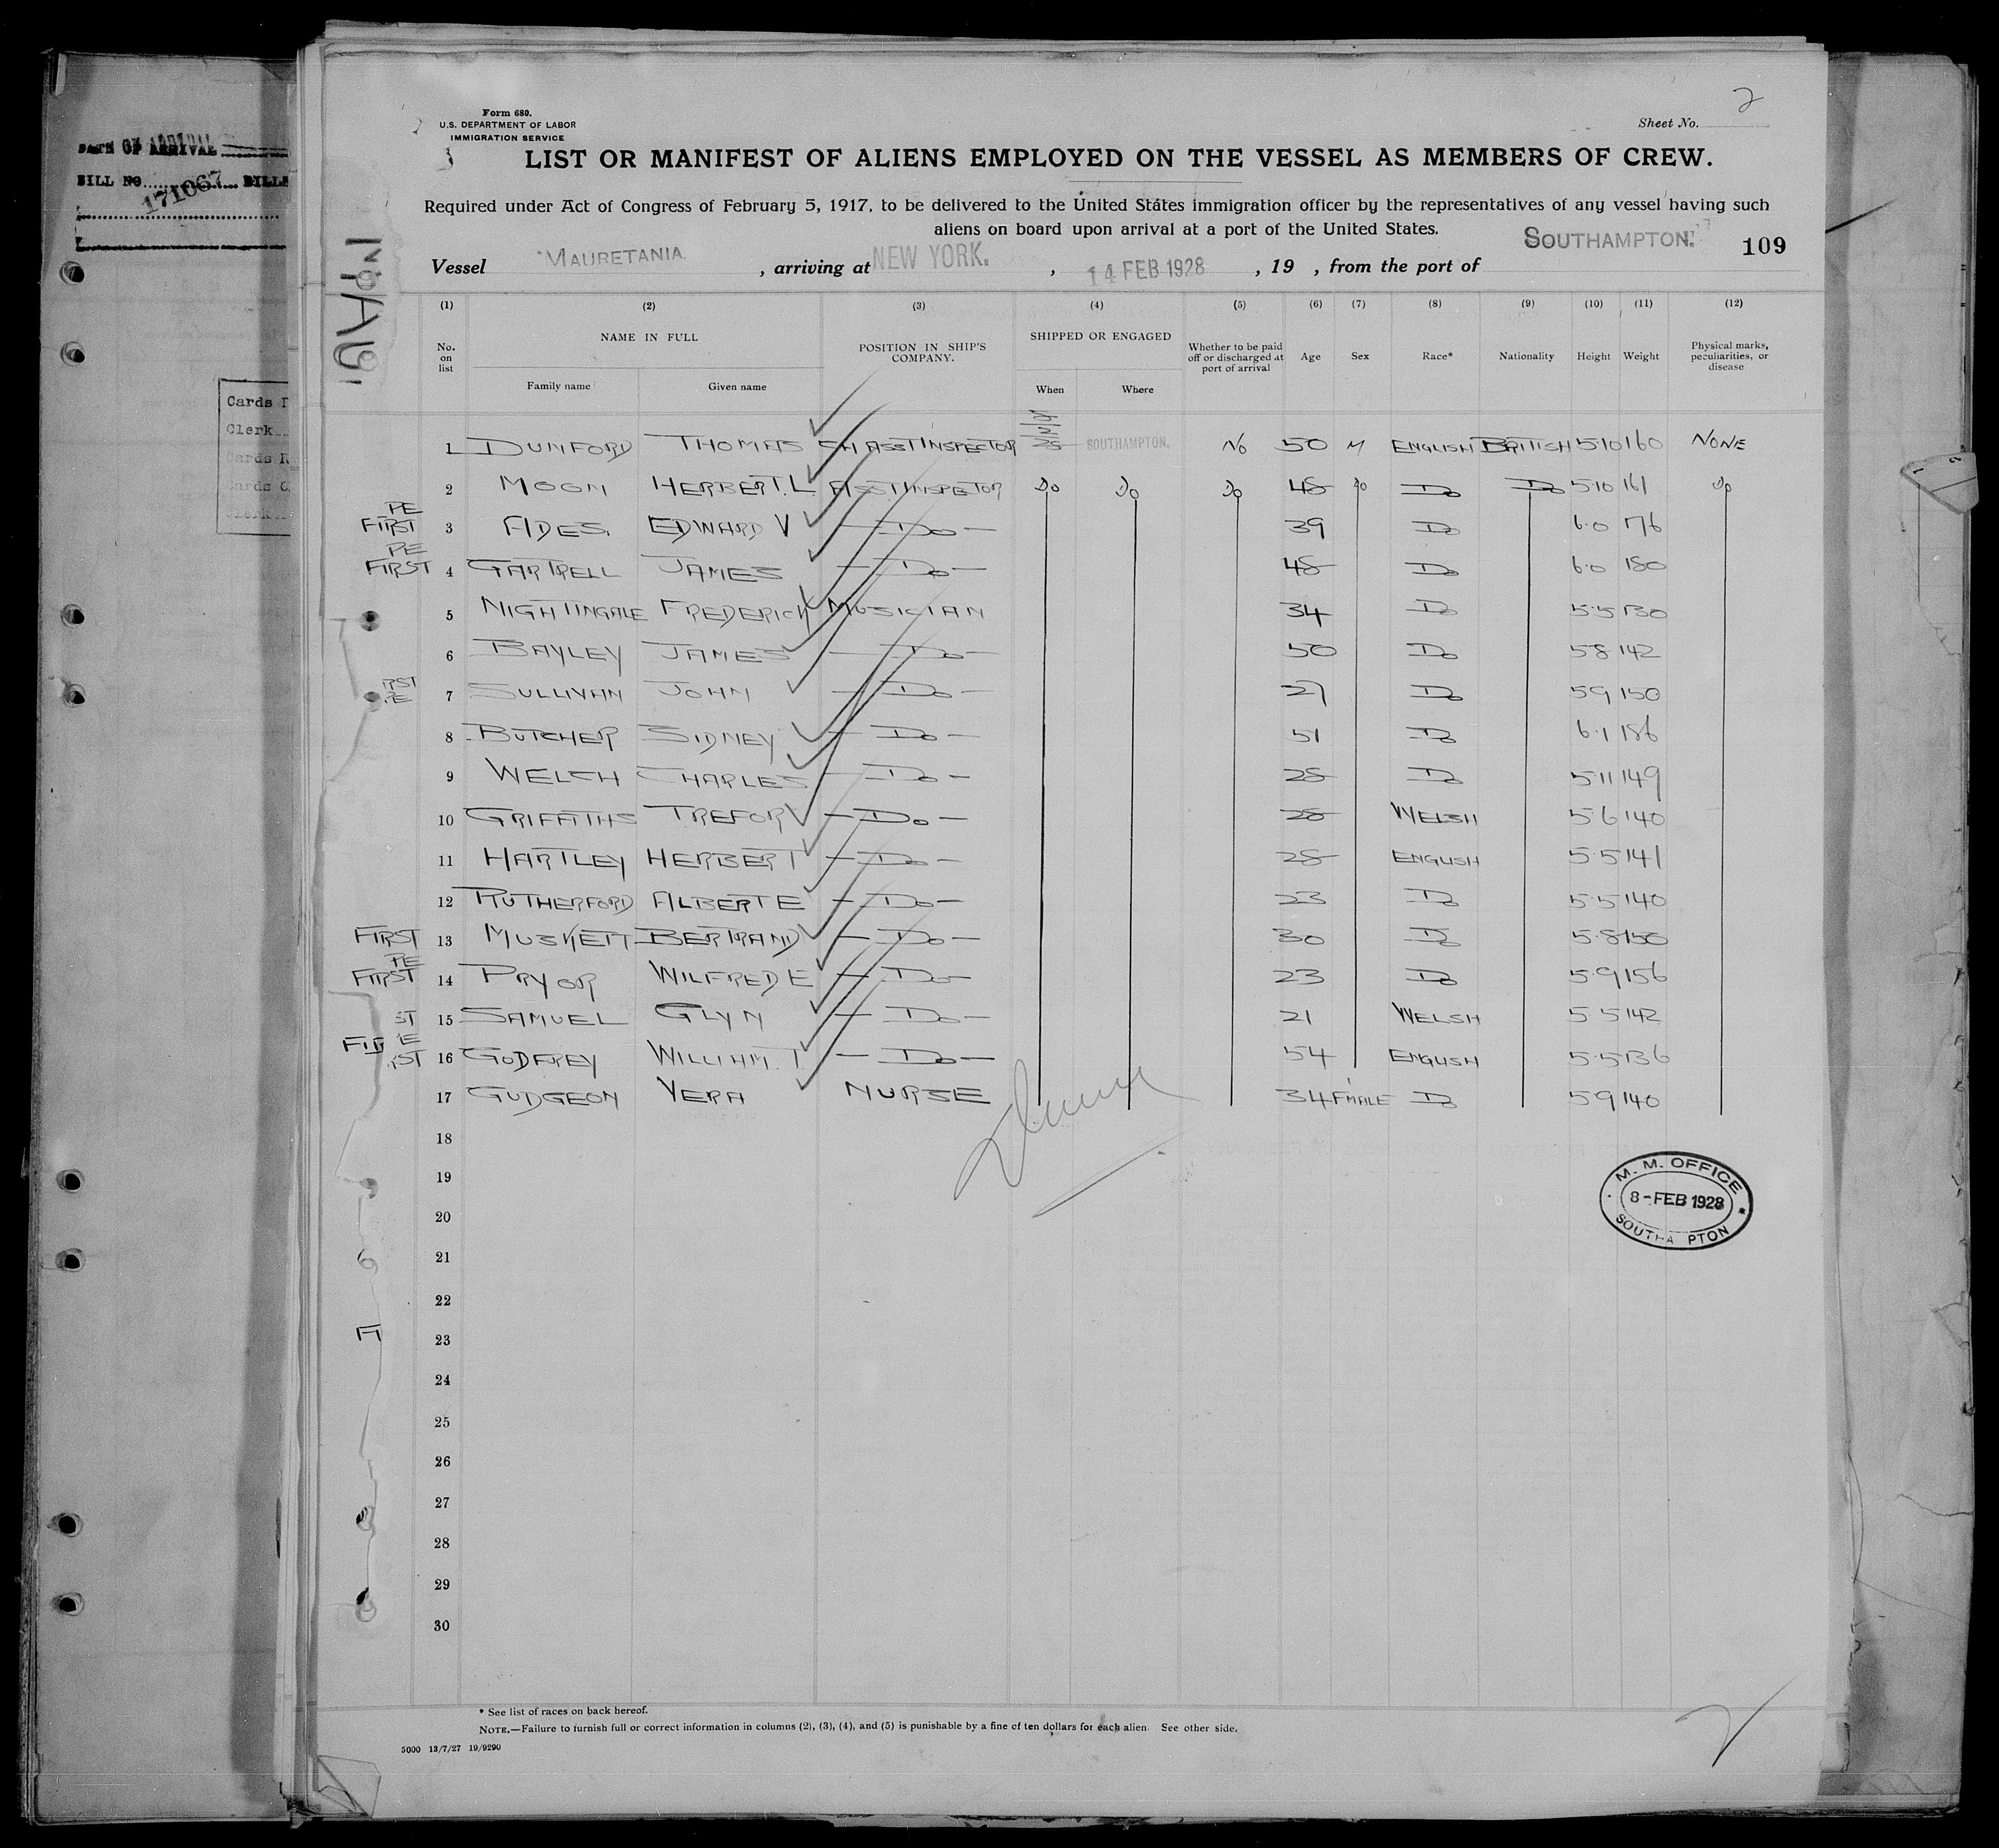 DATE OF ARRIVAL
BILL NO. 171067
Cards
Clerk
Cards
Cards
Clerk
2
Form 680.
U.S. DEPARTMENT OF LABOR
IMMIGRATION SERVICE
Sheet No.
LIST OR MANIFEST OF ALIENS EMPLOYED ON THE VESSEL AS MEMBERS OF CREW.
Required under Act of Congress of February 5, 1917, to be delivered to the United States immigration officer by the representatives of any vessel having such
aliens on board upon arrival at a port of the United States.
Vessel MAURETANIA, arriving at NEW YORK., 14 FEB 1928, 19 , from the port of SOUTHAMPTON. 109
(1) (2) (3) (4) (5) (6) (7) (8) (9) (10) (11) (12)
No. on list NAME IN FULL Family name Given name POSITION IN SHIP'S COMPANY. SHIPPED OR ENGAGED When Where Whether to be paid off or discharged at port of arrival Age Sex Race* Nationality Height Weight Physical marks, peculiarities, or disease
1 DUNFORD THOMAS CH ASST INSPECTOR SOUTHAMPTON. No 50 M ENGLISH BRITISH 5.10 160 NONE
2 MOON HERBERT.L ASST INSPECTOR Do Do Do 48 Do Do Do 5.10 161 Do
PE
FIRST 3 ADES. EDWARD V — Do — 39 Do 6.0 176
PE
FIRST 4 GARTRELL JAMES — Do — 48 Do 6.0 180
5 NIGHTINGALE FREDERICK MUSICIAN 34 Do 5.5 130
6 BAYLEY JAMES — Do — 50 Do 5 8 142
7 SULLIVAN JOHN — Do — 27 Do 5 9 150
8 BUTCHER SIDNEY — Do — 51 Do 6.1 186
9 WELCH CHARLES — Do — 28 Do 5.11 149
10 GRIFFITHS TREFOR — Do — 28 WELSH 5.6 140
11 HARTLEY HERBERT — Do — 28 ENGLISH 5.5 141
12 RUTHERFORD ALBERT E — Do — 23 Do 5.5 140
FIRST 13 MUSKETT BERTRAND — Do — 30 Do 5.8 150
PE
FIRST 14 PRYOR WILFRED E — Do — 23 Do 5.9 156
ST 15 SAMUEL GLYN — Do — 21 WELSH 5 5 142
16 GODFREY WILLIAM. T — Do — 54 ENGLISH 5.5 136
17 GUDGEON VERA NURSE 34 FMALE Do 5 9 140
18
19
20
21
22
23
24
25
26
27
28
29
30
M. M. OFFICE
8 - FEB 1928
SOUTHA PTON
* See list of races on back hereof.
NOTE.—Failure to furnish full or correct information in columns (2), (3), (4), and (5) is punishable by a fine of ten dollars for each alien. See other side.
5000 13/7/27 19/9290